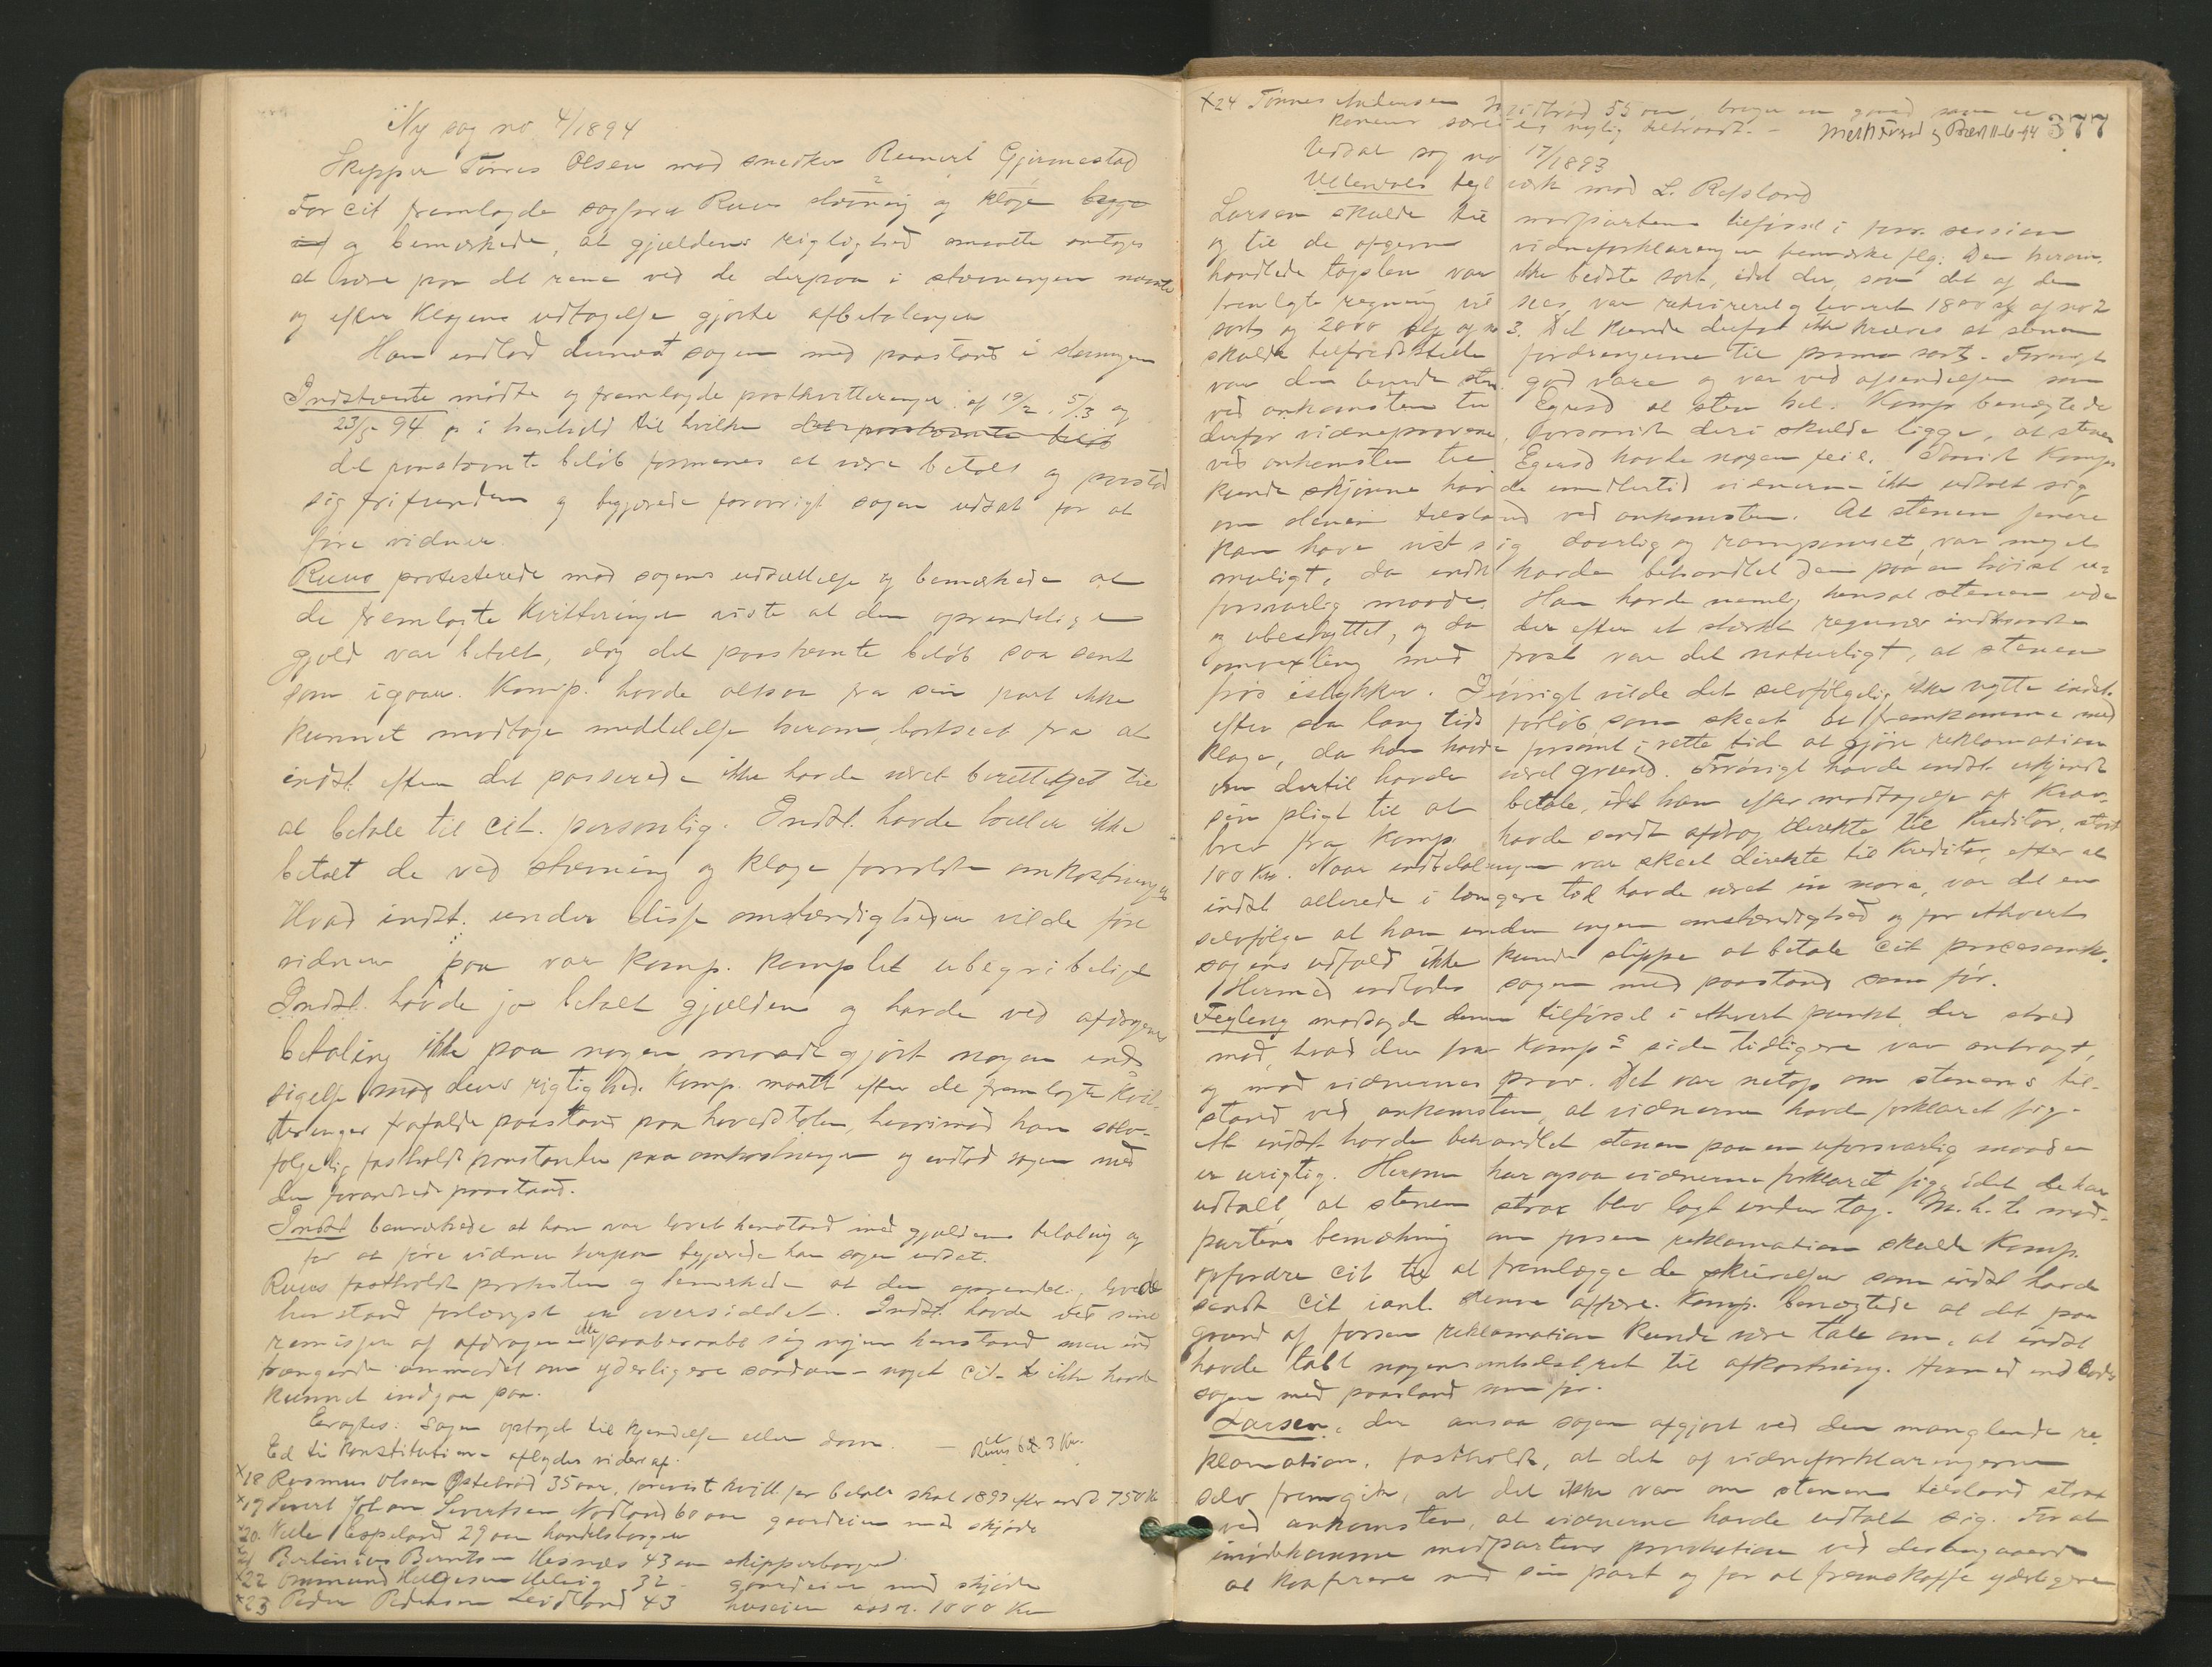 Ny sag no 4/1894
Skipper Tönnes Olsen mod snedker Reinert Gjermestad
For cit fremlagde sagfører Ruus stævning og klage begge
og bemærkede, at gjældens rigtighed maatte antages
at være paa det rene ved de derpaa i stævningen nævnte
og efter klagens udtagelse gjorte afbetalinger
Han indlod dernæst sagen med paastand i stævningen
Indstævnte mødte og fremlagde postkvitteringer af 19/2, 5/3 og
23/5 94 og i henhold til hvilke det paastævnte beløb
det paastævnte beløb formenes at være betalt og paastod
sig frifunden og begjærede forøvrigt sagen udsat for at
føre vidner.
Ruus protesterede mod sagens udsættelse og bemærkede at
de fremlagte kvitteringer viste at den oprindelige
gjæld var betalt, dog det paastævnte beløb saa sent
som igaar. Komp. havde altsaa fra sin part ikke
kunnet modtage meddelelse herom, bortseet fra at
indst. efter det passerede ikke havde været berettiget til
at betale til cit. personlig. Indst. havde heller ikke
betalt de ved stævning og klage forvoldte omkostninger
Hvad indst. under disse omstændigheder vilde føre
vidner paa var komp. komplet ubegribeligt
Indst. havde jo betalt gjælden og havde ved afdragenes
betaling ikke paa nogen maade gjort nogen ind-
sigelse mod dens rigtighed. Komp. maatte efter de fremlagte kvit-
teringer frafalde paastand paa hovedstolen, hvorimod han selv-
følgelig fastholdt paastanden paa omkostninger og indlod sagen med
den forandrede paastand.
Indst bemærkede at han var lovet henstand med gjældens betaling og
for at føre vidner herpaa begjærede han sagen udsat.
Ruus fastholdt protesten og bemærkede at den oprindel. lovede
henstand forlængst er oversiddet. Indst. havde ved sine
remisser af afdragene ikke paaberaabt sig nogen henstand men ind
trængende anmodet om yderligere saadan - noget cit. ikke havde
kunnet indgaa paa.
Eragtes: Sagen optaget til kjendelse eller dom. — Ruus bet. 3 Kr.
Ed til konstitutionen aflagdes videre af
×18 Rasmus Olsen Østebrød 35 aar, forevist kvitt. for betalt skat 1893 efter indt. 750 Kr
×19 Sivert Johan Sivertsen Nodland 60 aar gaardeier med skjøde
×20. Nille Espeland 29 aar handelsborger
×21 Bertinius Berntsen Hesnæs 43 aar skipperborger
×22 Ommund Helgesen Helvig 32 - gaardeier med skjøde
×23 Peder Pedersen Leidland 43 huseier 1000 Kr
×24 Tönnes Andersen Midbrød 55 aar, bruger en gaard som er
konens særeie nylig tiltraadt. - 377
Udsat sag no 17/1893
Ullendals teglværk mod L. Refsland
Larsen skulde til modpartens tilførsel i forr. session
og til de afgivne vidneforklaringer bemærke flg: Den herom-
handlede tagsten var ikke bedste sort, idet der, som det af den
fremlagte regning vil sees, var rekvireret og leveret 1800 stk af no 2
sort og 2000 stk af no 3. Det kunde derfor ikke kræves at stenen
skulde tilfredsstille fordringerne til prima sort. Forøvrigt
var den brændte sten god vare og var ved afsendelsen som
ved ankomsten til Egersd at sten hel. Komp benægtede
derfor vidneprovene, forsaavidt deri skulde ligge, at stenen
ved ankomsten til Egersd havde nogen feil. Saavidt komp
kunde skjønne havde imidlertid vidnerne ikke udtalt sig
om dennes tilstand ved ankomsten. At stenen senere
kan have vist sig daarlig og ramponeret, var meget
muligt, da indst havde behandlet den paa en høist u-
forsvarlig maade. Han havde nemlig hensat stenen ude
og ubeskyttet, og da der efter et stærkt regnveir indtraadte
omvexling med frost var det naturligt, at stenen
frøs istykker. Iøvrigt vilde det selvfølgelig ikke nytte indst.
efter saa lang tids forløb, som skeet at fremkomme med
klage, da han havde forsømt i rette tid at gjøre reklamation
om dertil havde været grund. Forøvrigt havde indst erkjendt
sin pligt til at betale, idet han efter modtagelse af krav-
brev fra komp. havde sendt afdrag direkte til kreditor, stort
100 Kr. Naar indbetalingen var skeet direkte til kreditor, efter at
indst allerede i længere tid havde været in mora, var det en
selvfølge at han under ingen omstændighed og for ethvert
sagens udfald ikke kunde slippe at betale cit procesomk.
Hermed indlodes sagen med paastand som før.
Fegling modsagde denne tilførsel i ethvert punkt, der stred
mod, hvad der fra komps side tidligere var anbragt,
og mod vidnernes prov. Det var netop om stenens til-
stand ved ankomsten, at vidnerne havde forklaret sig.
At indst havde behandlet stenen paa en uforsvarlig maade
er urigtig. Herom har ogsaa vidnerne forklaret sig, idet de har
udtalt, at stenen strax blev lagt under tag. M.h.t. mod-
partens bemækning om forsen reklamation skulde komp.
opfordre cit til at fremlægge de skrivelser som indst havde
sendt cit ianl. denne affære. Komp. benægtede at det paa
grund af forsen reklamation kunde være tale om, at indst
havde tabt nogensomhelst ret til afkortning. Hermed indlodes
sagen med paastand som før.
Larsen, der ansaa sagen afgjort ved den manglende re-
klamation, fastholdt, at det af vidneforklaringerne
selv fremgik, at det ikke var om stenens tilstand strax
ved ankomsten, at vidnerne havde udtalt sig. For at
imødekomme modpartens provokation ved desangaaende
at konferere med sin part og for at fremskaffe yderligere